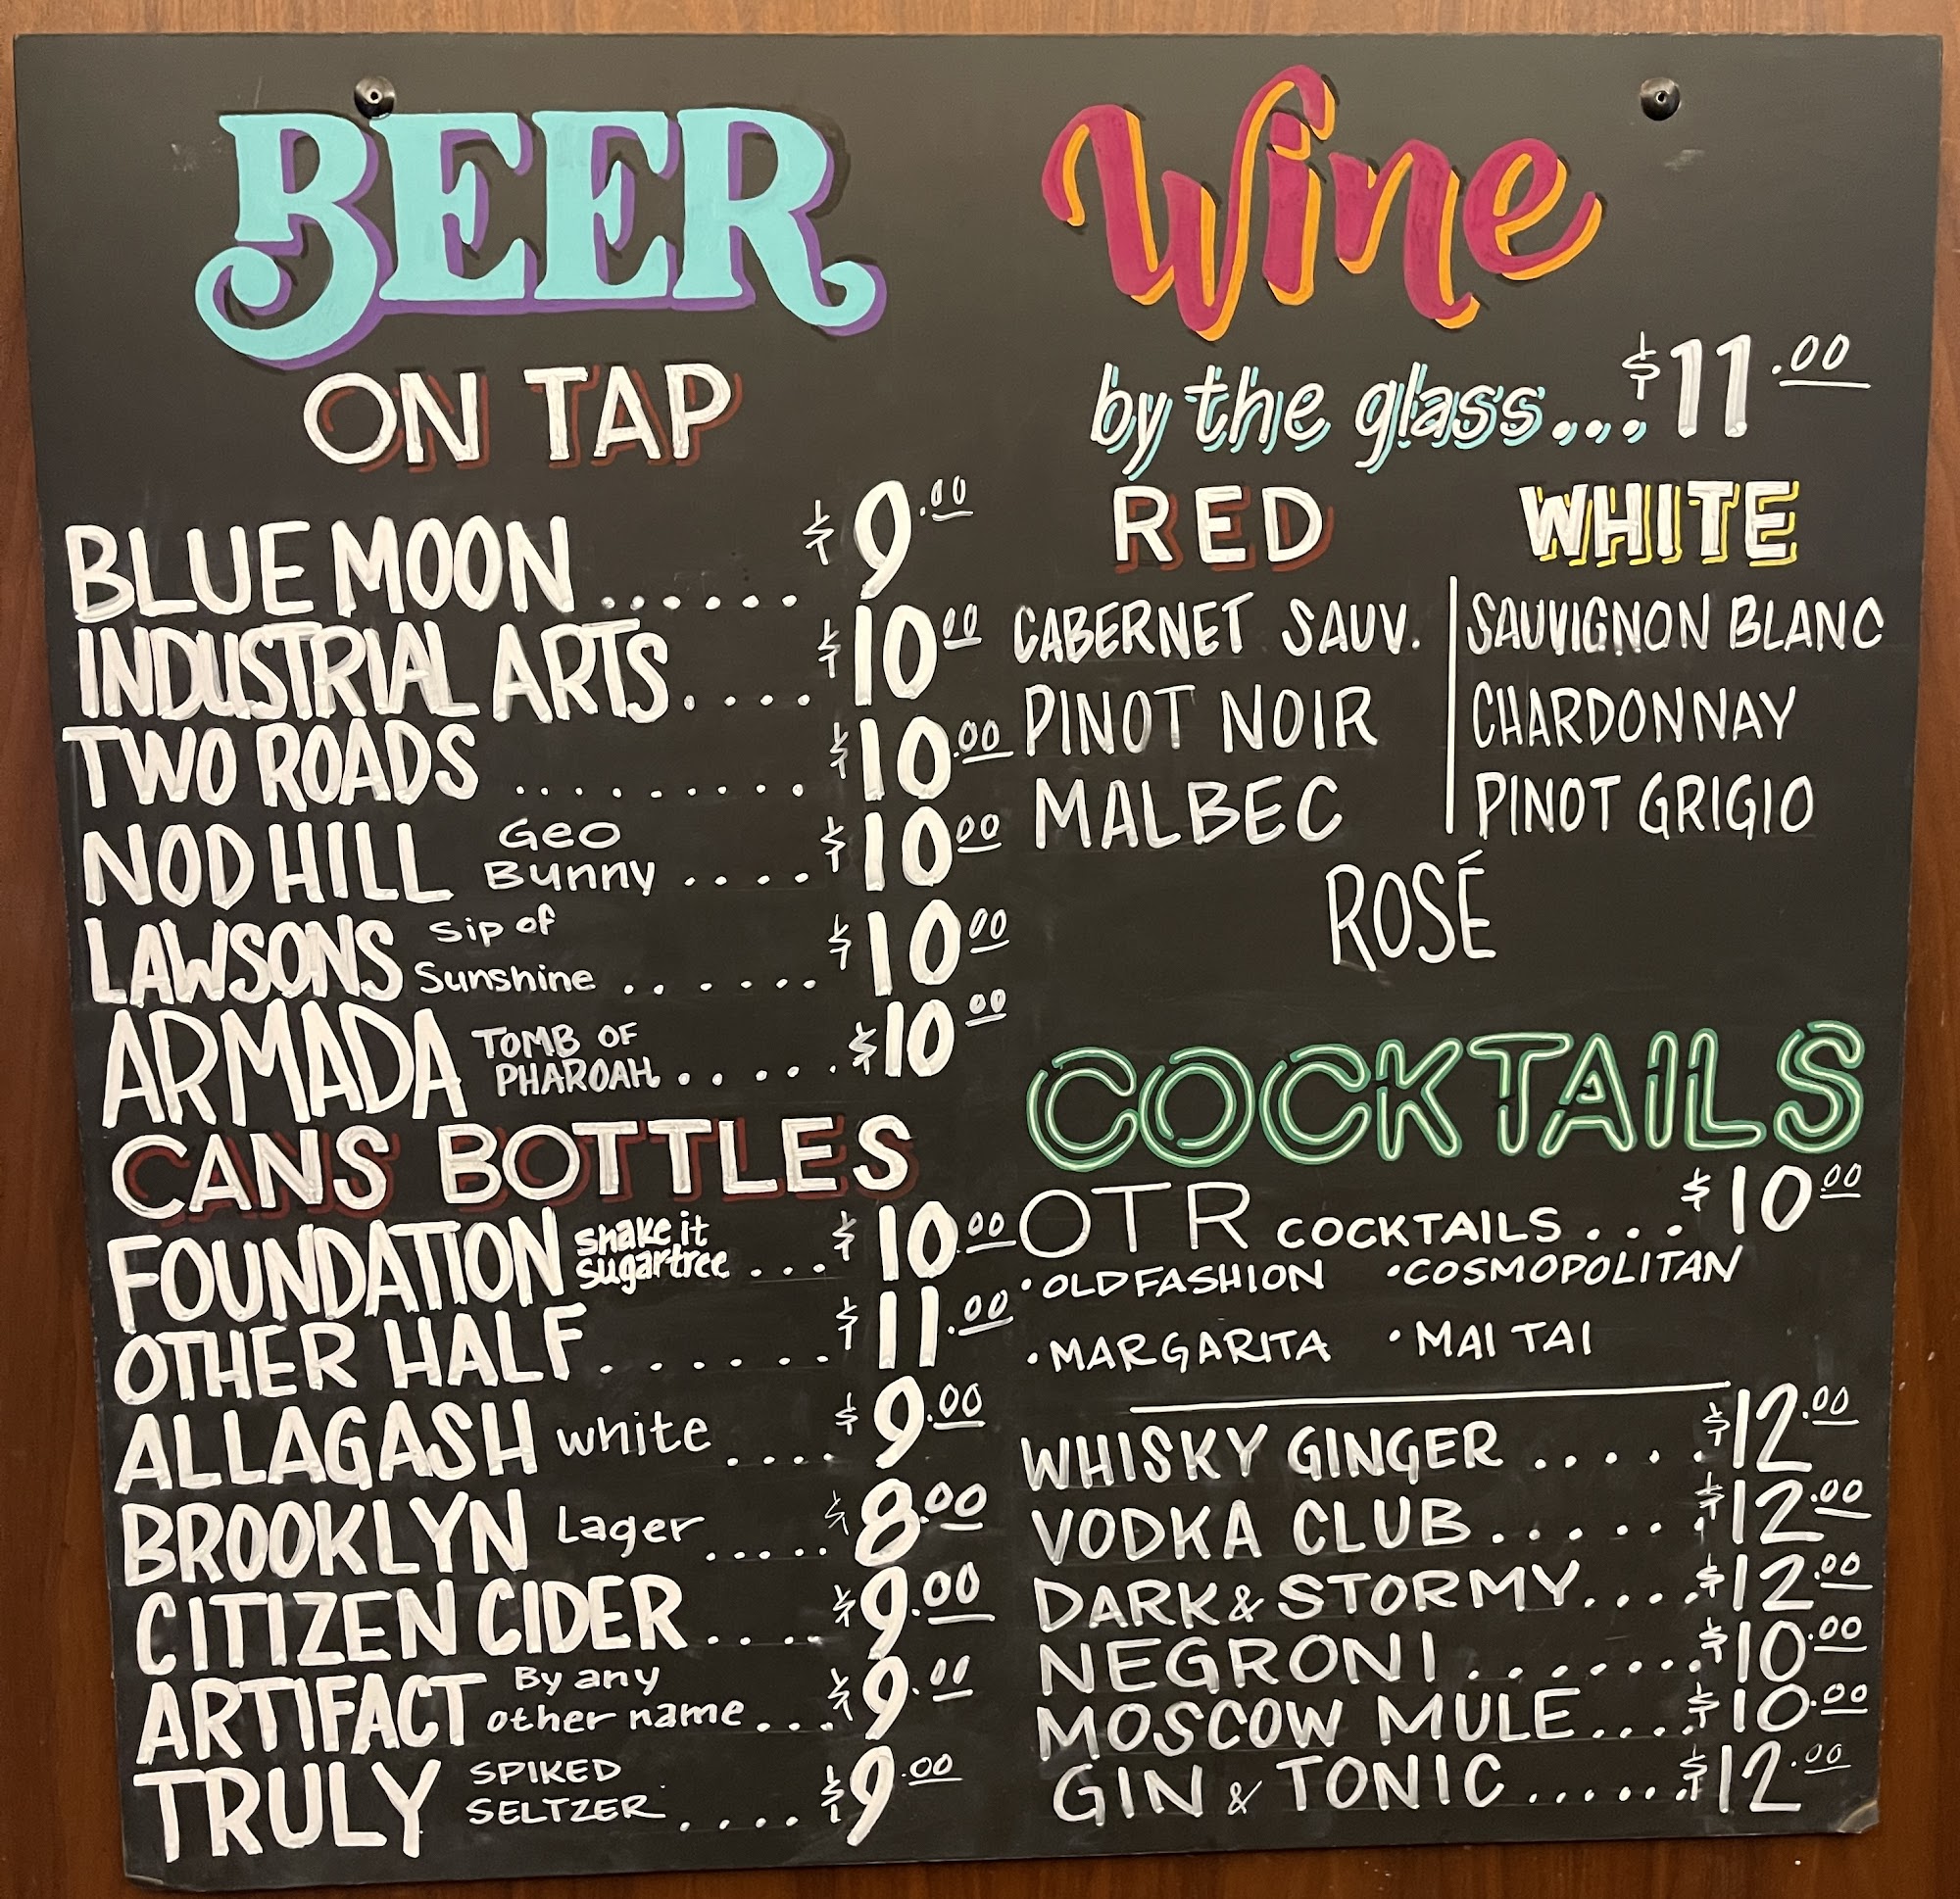 BEER
ON TAP
BLUE MOON ...... $9.00
INDUSTRIAL ARTS.... $10.00
TWO ROADS ......... $10.00
NOD HILL Geo Bunny .... $10.00
LAWSONS Sip of Sunshine ...... $10.00
ARMADA TOMB OF PHAROAH...... $10.00
CANS BOTTLES
FOUNDATION Shake it sugartree .... $10.00
OTHER HALF....... $11.00
ALLAGASH white .... $9.00
BROOKLYN Lager ..... $8.00
CITIZEN CIDER .... $9.00
ARTIFACT By any other name.... $9.00
TRULY SPIKED SELTZER .... $9.00
Wine
by the glass... $11.00
RED
CABERNET SAUV.
PINOT NOIR
MALBEC
WHITE
SAUVIGNON BLANC
CHARDONNAY
PINOT GRIGIO
ROSÉ
COCKTAILS
OTR COCKTAILS ... $10.00
• OLDFASHION • COSMOPOLITAN
• MARGARITA • MAI TAI
WHISKY GINGER ..... $12.00
VODKA CLUB...... $12.00
DARK & STORMY.... $12.00
NEGRONI ....... $10.00
MOSCOW MULE.... $10.00
GIN & TONIC ...... $12.00